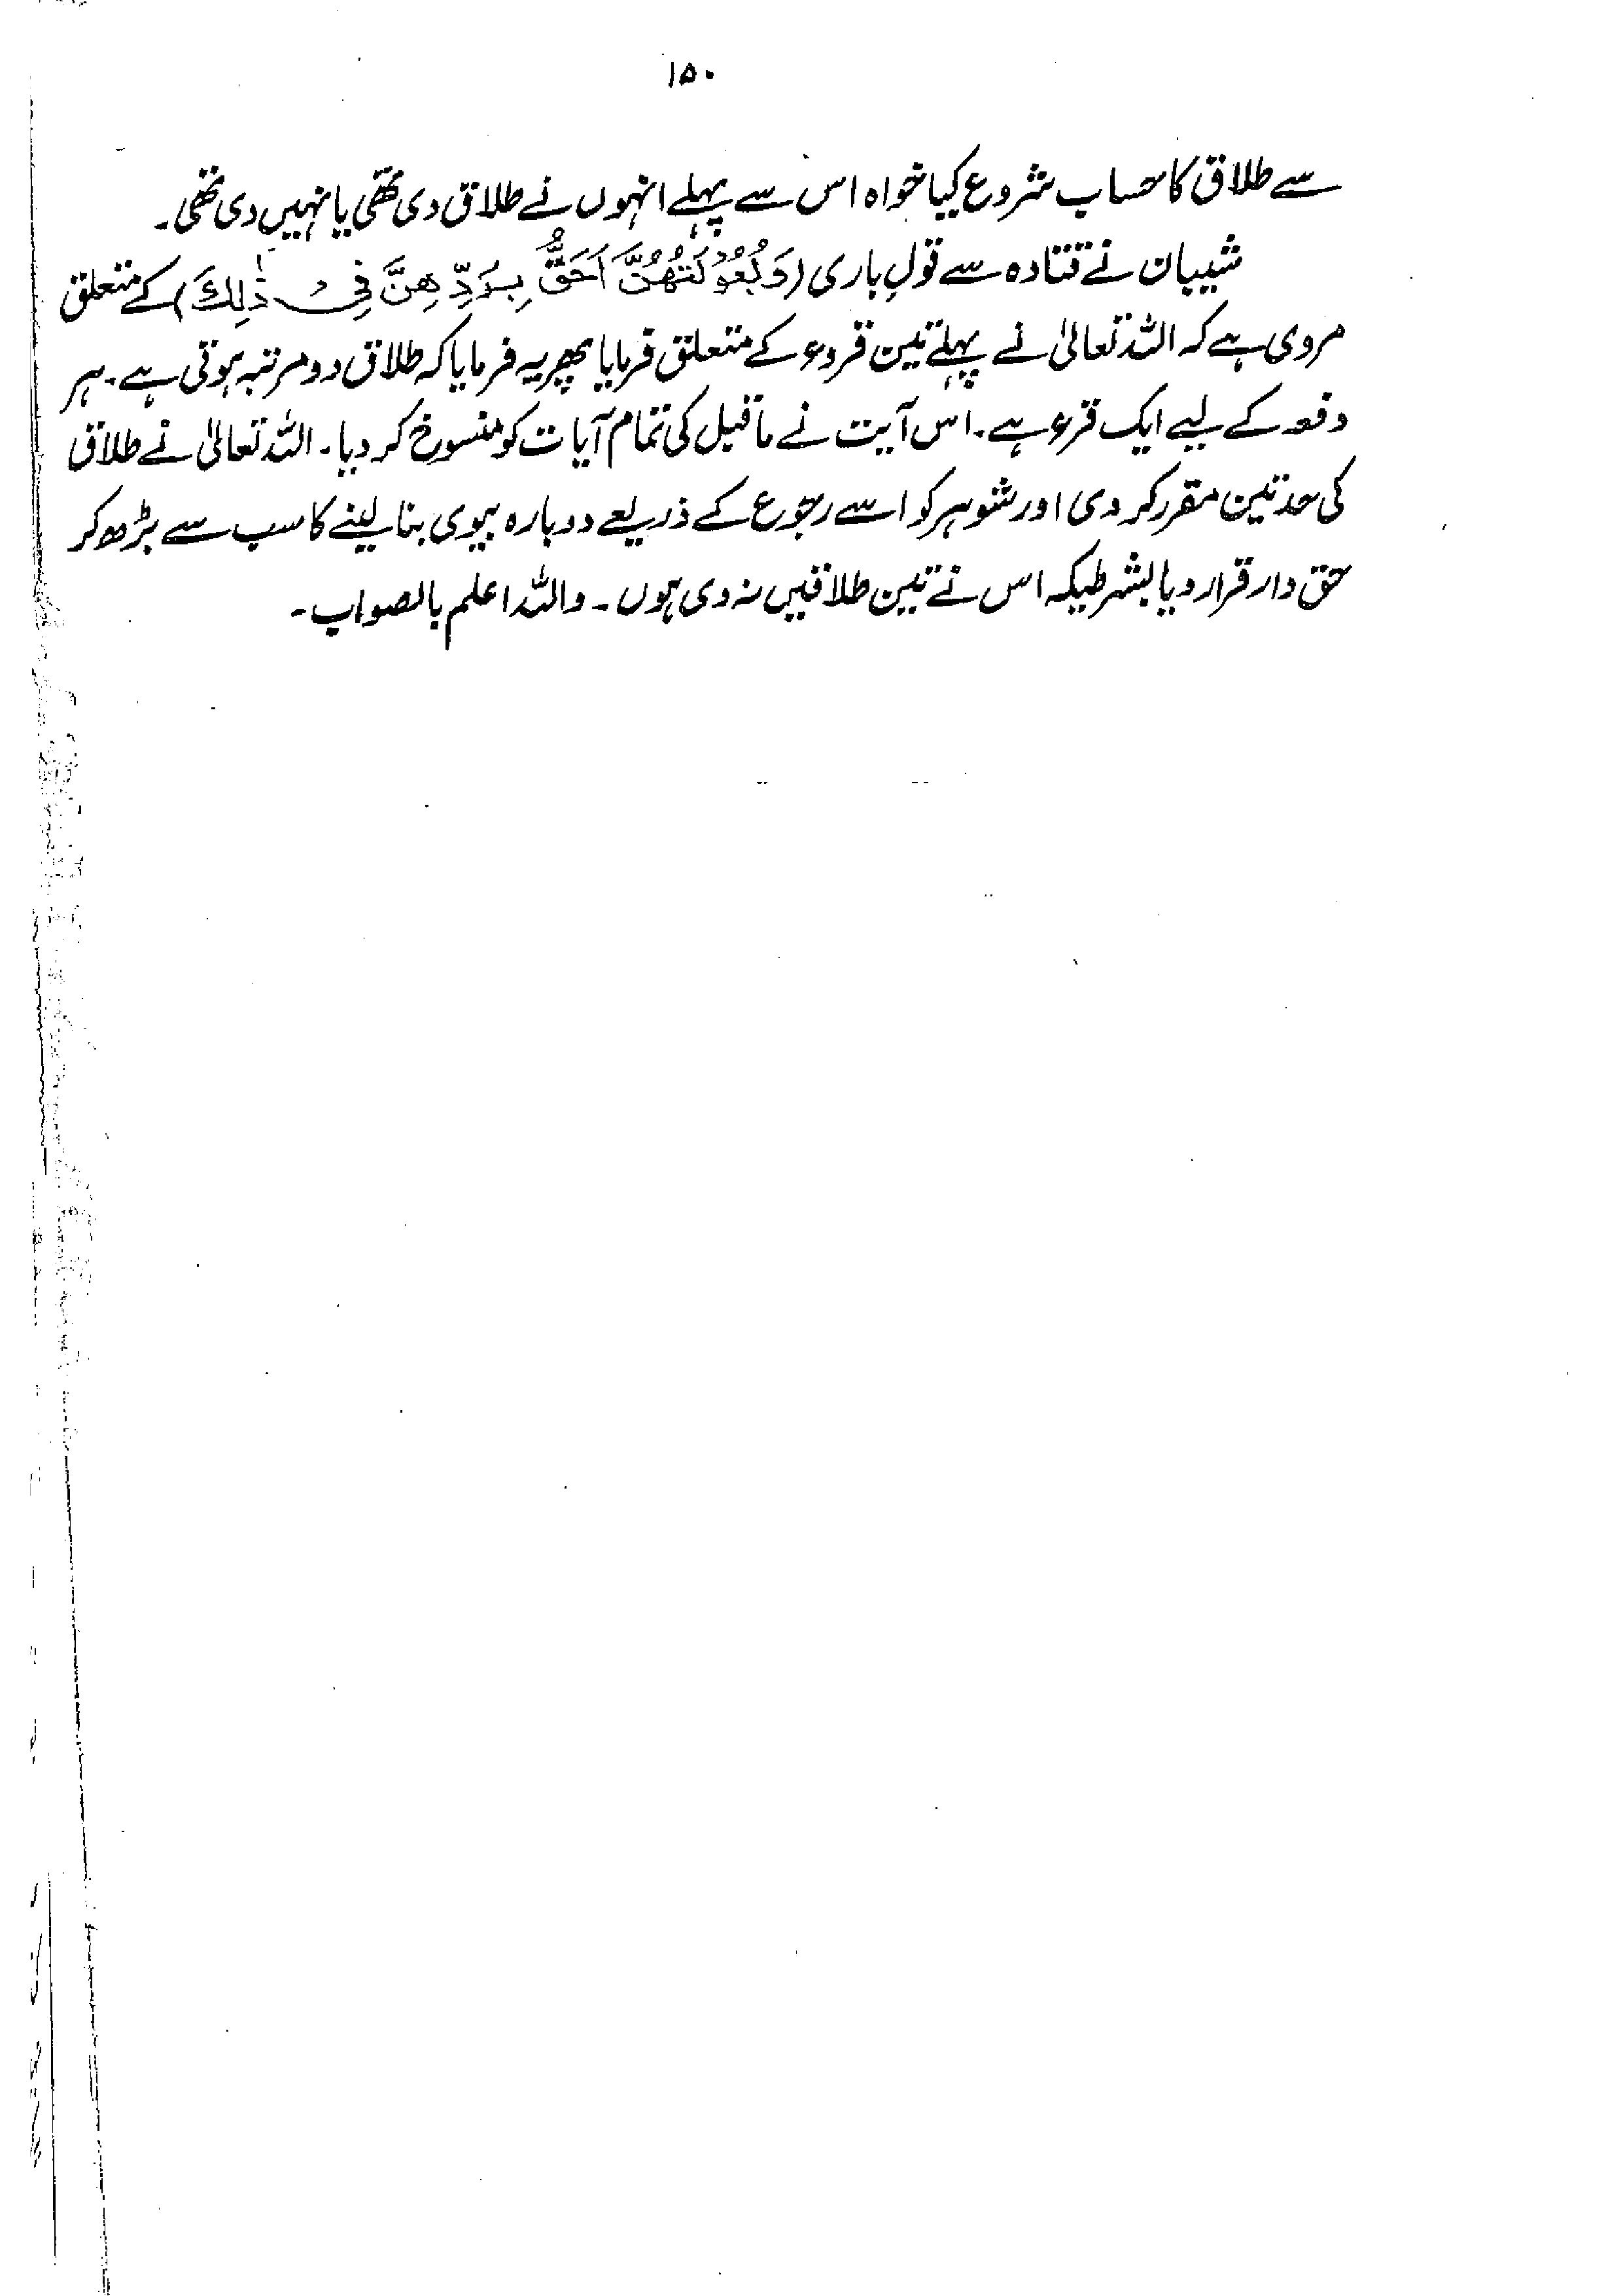 ۱۵۰
سے طلاق کا حساب شروع کیا خواہ اس سے پہلے انہوں نے طلاق دی تھی یا نہیں دی تھی۔
شیبان نے قتادہ سے قولِ باری (وَبُعُوْلَتُهُنَّ اَحَقُّ بِرَدِّهِنَّ فِیْ ذٰلِكَ) کے متعلق
مروی ہے کہ اللہ تعالیٰ نے پہلے تین قروء کے متعلق فرمایا پھر یہ فرمایا کہ طلاق دو مرتبہ ہوتی ہے۔ ہر
دفعہ کے لیے ایک قرء ہے۔ اس آیت نے ماقبل کی تمام آیات کو منسوخ کر دیا۔ اللہ تعالیٰ نے طلاق
کی حد تین مقرر کر دی اور شوہر کو اسے رجوع کے ذریعے دوبارہ بیوی بنا لینے کا سب سے بڑھ کر
حق دار قرار دیا بشرطیکہ اس نے تین طلاقیں نہ دی ہوں۔ واللہ اعلم بالصواب۔